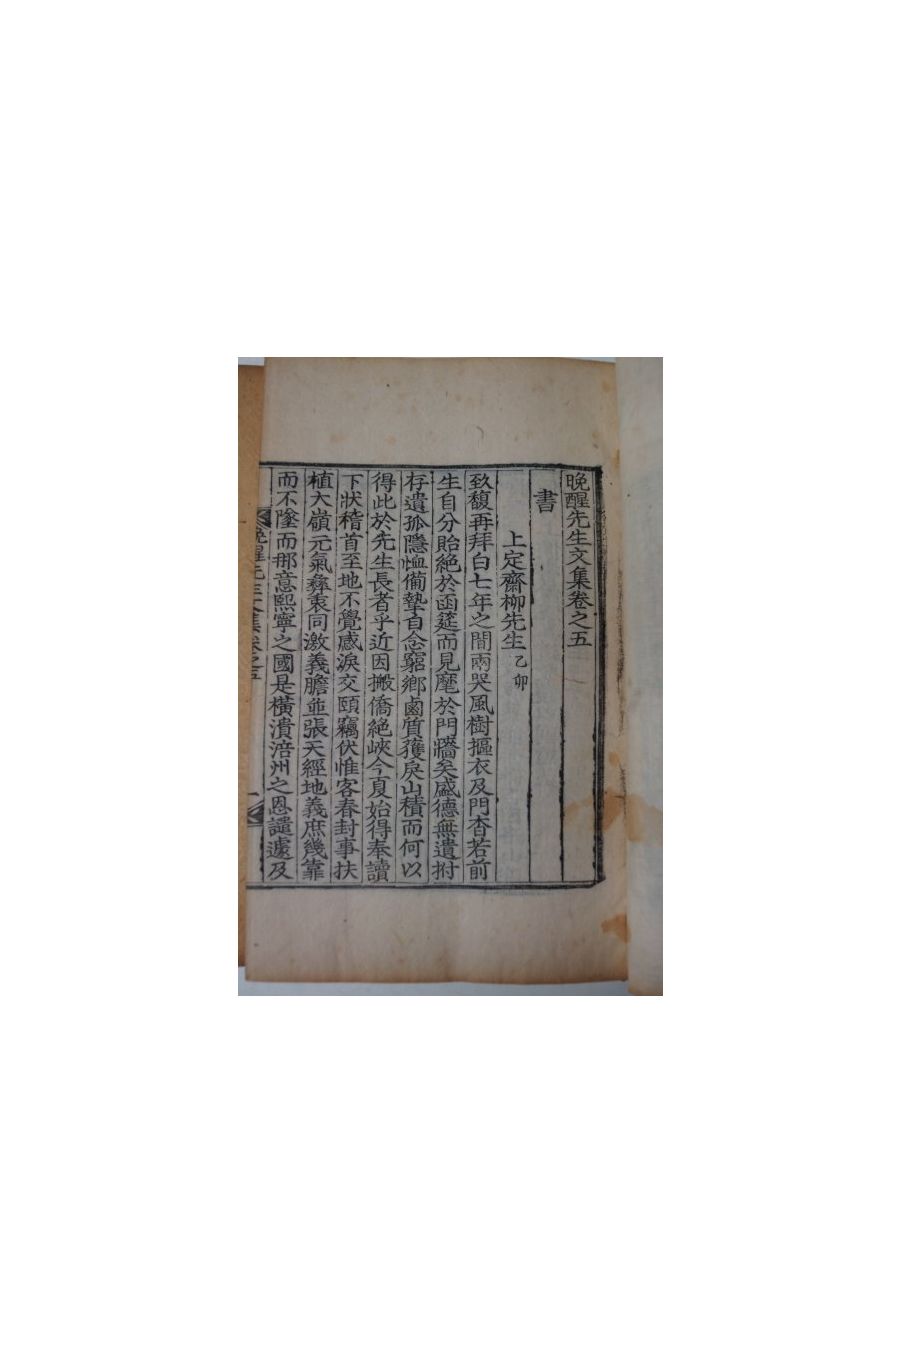 晩醒先生文集卷之五
書
上定齋柳先生 乙卯
致馥再拜白七年之間兩哭風樹摳衣及門杳若前
生自分貽絶於函筵而見麾於門牆矣盛德無遺拊
存遺孤隱恤備摯自念窮鄉鹵質獲戾山積而何以
得此於先生長者乎近因搬僑絶峽今夏始得奉讀
下狀稽首至地不覺感淚交頤竊伏惟客春封事扶
植大嶺元氣彜衷同激義膽並張天經地義庶幾靠
而不墜而那意熙寧之國是橫潰涪州之恩譴遽及
晩醒先生文集卷之五